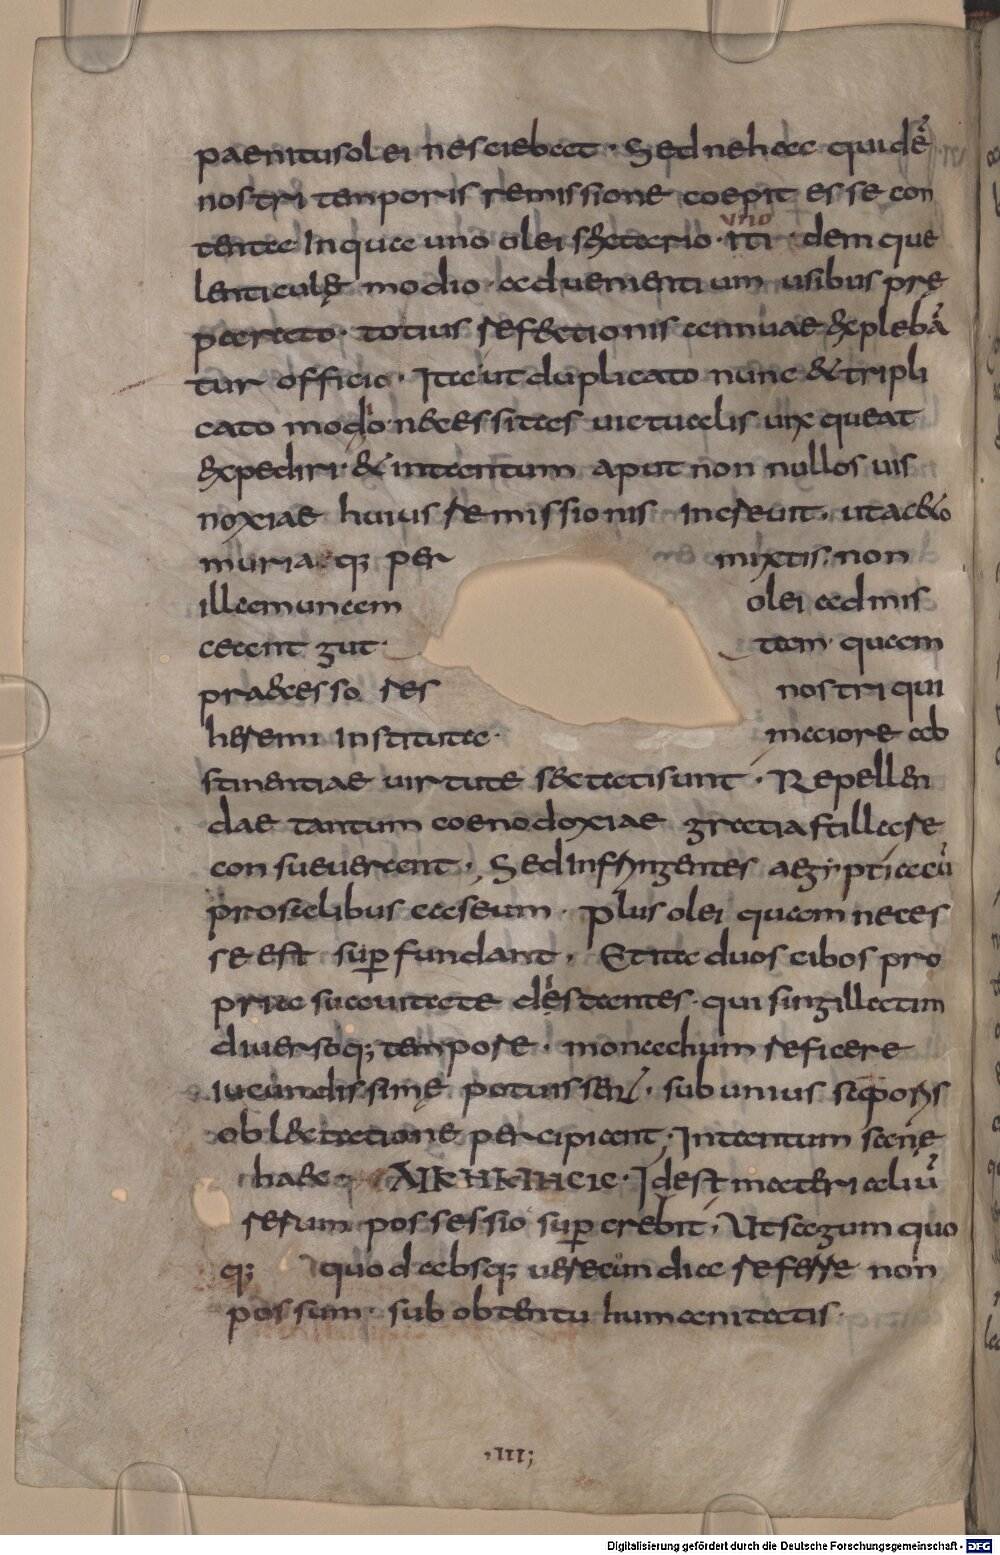 paenitus olei nesciebat · Sed ne haec quidē
nostri temporis remissione coepit esse con
tenta In qua uno olei sextario · uno iti · demque
lenticulę modio · ad uenientium usibus prę
parato · totius refectionis annuae explebā
tur officia · Ita ut duplicato nunc & tripli
cato modio necessitas uictualis uix queat
expediri · & intantum aput non nullos uis
noxiae huius remissionis increuit · ut aceto
muriaq; per mixtis · non
illam unam olei admis
ceant gut tam · quam
pradecesso res nostri qui
heremi Instituta · maiore ab
stinentiae uirtute sectati sunt · Repellen
dae tantum coenodoxiae gratia stillare
consueuerant · Sed Infringentes aegyptiacū
prosielibus caseum · plus olei quam neces
se est sup fundant · Et ita duos cibos pro
pria suauitate distantes · qui singillatim
diuersoq; tempore · monachum reficere
Iucundissimę potuissent · sub unius saporis
oblectatione percipiant; Intantum sane
haec Idest materialiū
rerum possessio sup crebit, Ut sagum quo
q; quod absq; uerecundia referre non
possum · sub obtentu humanitatis ·
·III;
Digitalisierung gefördert durch die Deutsche Forschungsgemeinschaft - DFG